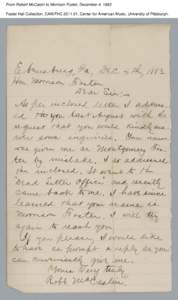 From Robert McCaslin to Morrison Foster, December 4, 1882
Foster Hall Collection, CAM.FHC.2011.01, Center for American Music, University of Pittsburgh.
Ebensburg Pa, Dec. 4th, 1882.
Hon Morrison Foster
Dear Sir:-
As per inclosed letter I addres-
sed you last August with the
request that you would kindly
make some inquiries. Your name
was given me as Montgomery Fos-
ter by mistake. I so addressed
you inclosed. It went to the
Dead Letter Office and recently
came back to me. I have since
learned that your name is
Morrison Foster. I will try
again to reach you.
If you please, I would like
to have as prompt a reply as you
can conveniently give me.
Yours Very truly
Robt McCaslin